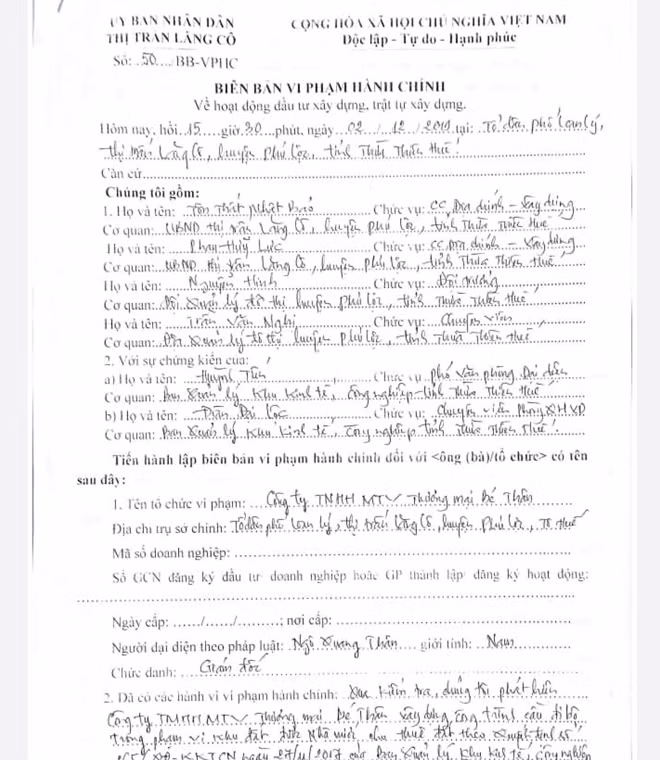 ỦY BAN NHÂN DÂN
THỊ TRẤN LĂNG CÔ
CỘNG HÒA XÃ HỘI CHỦ NGHĨA VIỆT NAM
Độc lập - Tự do - Hạnh phúc
Số: 50/BB-VPHC
BIÊN BẢN VI PHẠM HÀNH CHÍNH
Về hoạt động đầu tư xây dựng, trật tự xây dựng.
Hôm nay, hồi 15 giờ 30 phút, ngày 02/12/2019 tại: Tổ dân phố Loan Lý,
thị trấn Lăng Cô, huyện Phú Lộc, tỉnh Thừa Thiên Huế
Căn cứ
Chúng tôi gồm:
1. Họ và tên: Tôn Thất Nhật Bảo Chức vụ: CC Địa chính - Xây dựng
Cơ quan: UBND thị trấn Lăng Cô, huyện Phú Lộc, tỉnh Thừa Thiên Huế
Họ và tên: Phan Huy Lực Chức vụ: CC Địa chính - Xây dựng
Cơ quan: UBND thị trấn Lăng Cô, huyện Phú Lộc, tỉnh Thừa Thiên Huế
Họ và tên: Nguyễn Chức vụ: Đội trưởng
Cơ quan: Đội Quản lý đô thị huyện Phú Lộc, tỉnh Thừa Thiên Huế
Họ và tên: Trần Văn Nghị Chức vụ: Chuyên viên
Cơ quan: Đội Quản lý đô thị huyện Phú Lộc, tỉnh Thừa Thiên Huế
2. Với sự chứng kiến của:
a) Họ và tên: Huỳnh Tiến Chức vụ: phó văn phòng Đại diện
Cơ quan: Ban Quản lý Khu Kinh tế, Công nghiệp tỉnh Thừa Thiên Huế
b) Họ và tên: Đại Lộc Chức vụ: Chuyên viên Phòng QHXD
Cơ quan: Ban Quản lý Khu Kinh tế, Công nghiệp tỉnh Thừa Thiên Huế
Tiến hành lập biên bản vi phạm hành chính đối với <ông (bà)/tổ chức> có tên
sau đây:
1. Tên tổ chức vi phạm: Công ty TNHH MTV Thương mại Bé Thân
Địa chỉ trụ sở chính: Tổ dân phố Loan Lý, thị trấn Lăng Cô, huyện Phú Lộc, TT Huế
Mã số doanh nghiệp:
Số GCN đăng ký đầu tư doanh nghiệp hoặc GP thành lập đăng ký hoạt động:
Ngày cấp: ...../...../.........; nơi cấp:
Người đại diện theo pháp luật: Ngô Quang Thân giới tính: Nam
Chức danh: Giám đốc
2. Đã có các hành vi vi phạm hành chính: Qua kiểm tra, chúng tôi phát hiện
Công ty TNHH MTV Thương mại Bé Thân xây dựng công trình cầu đi bộ
trong phạm vi khu đất được Nhà nước cho thuê đất theo Quyết định số
QĐ-KKTCN ngày 27/11/2017 của Ban Quản lý Khu kinh tế, Công nghiệp